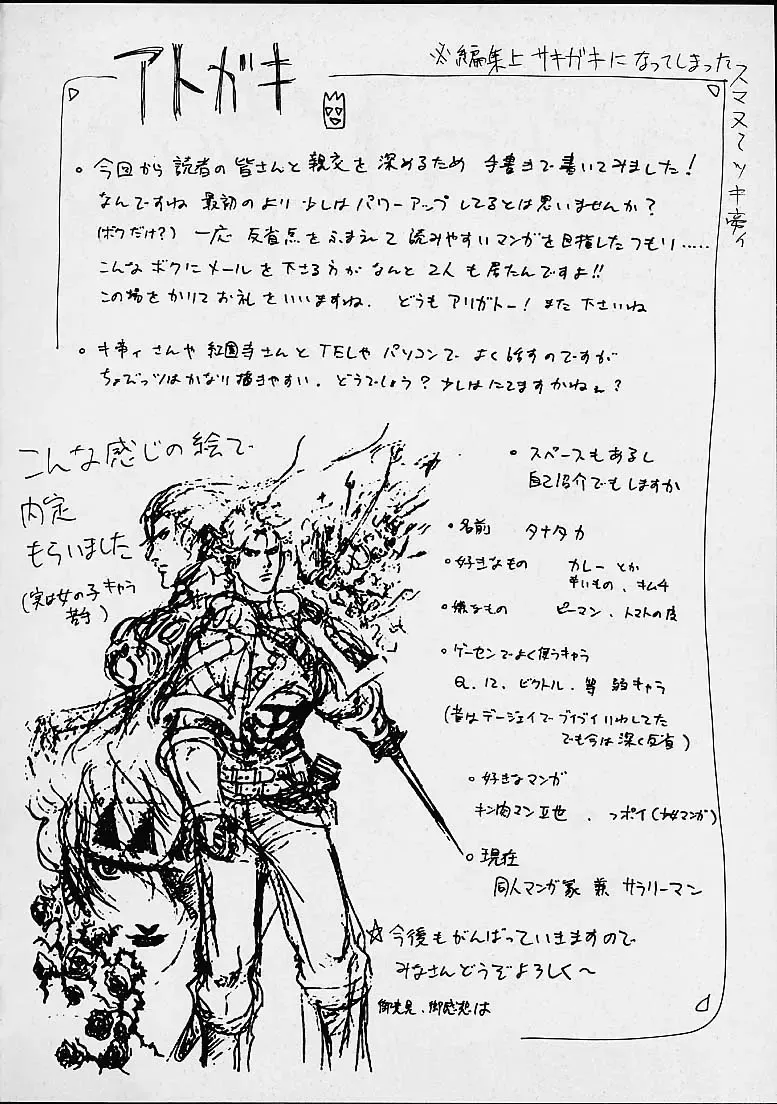 アトガキ
※編集上 サキガキになってしまった
スマヌ
・今回から 読者の皆さんと親交を 深めるため 手書きで書いてみました!
なんですね 最初のより 少しはパワーアップしてるとは思いませんか?
(ボクだけ?) 一応 反省点をふまえて 読みやすいマンガを目指したつもり.....
こんな ボクに メールを下さる方がなんと 2人も居たんですよ!!
この場をかりてお礼をいいますね. どうもアリガトー! また下さいね
さんや 紅園寺さんと TELや パソコンで よく話すのですが
ちょびっツはかなり描きやすい. どうでしょう? 少しはにてますかねぇ?
こんな感じの絵で
内定
もらいました
(実は女の子キャラ
苦手)
・スペースもあるし
自己紹介でもしますか
・名前 タナタカ
・好きなもの カレーとか
辛いもの、キムチ
・嫌なもの ピーマン、トマトの皮
・ゲーセンでよく使うキャラ
Q. 12. ビクトル. 等 弱キャラ
(昔はデージェイでブイブイいわしてた
でも今は深く反省)
・好きなマンガ
キン肉マンⅡ世 、っポイ(少女マンガ)
・現在
同人マンガ家 兼 サラリーマン
☆今後もがんばっていきますので
みなさんどうぞよろしく〜
御意見、御感想は